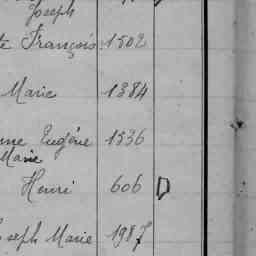 Joseph
François 1502
Marie 1384
Eugène 1536
Marie
Henri 606 D
Joseph Marie 1987